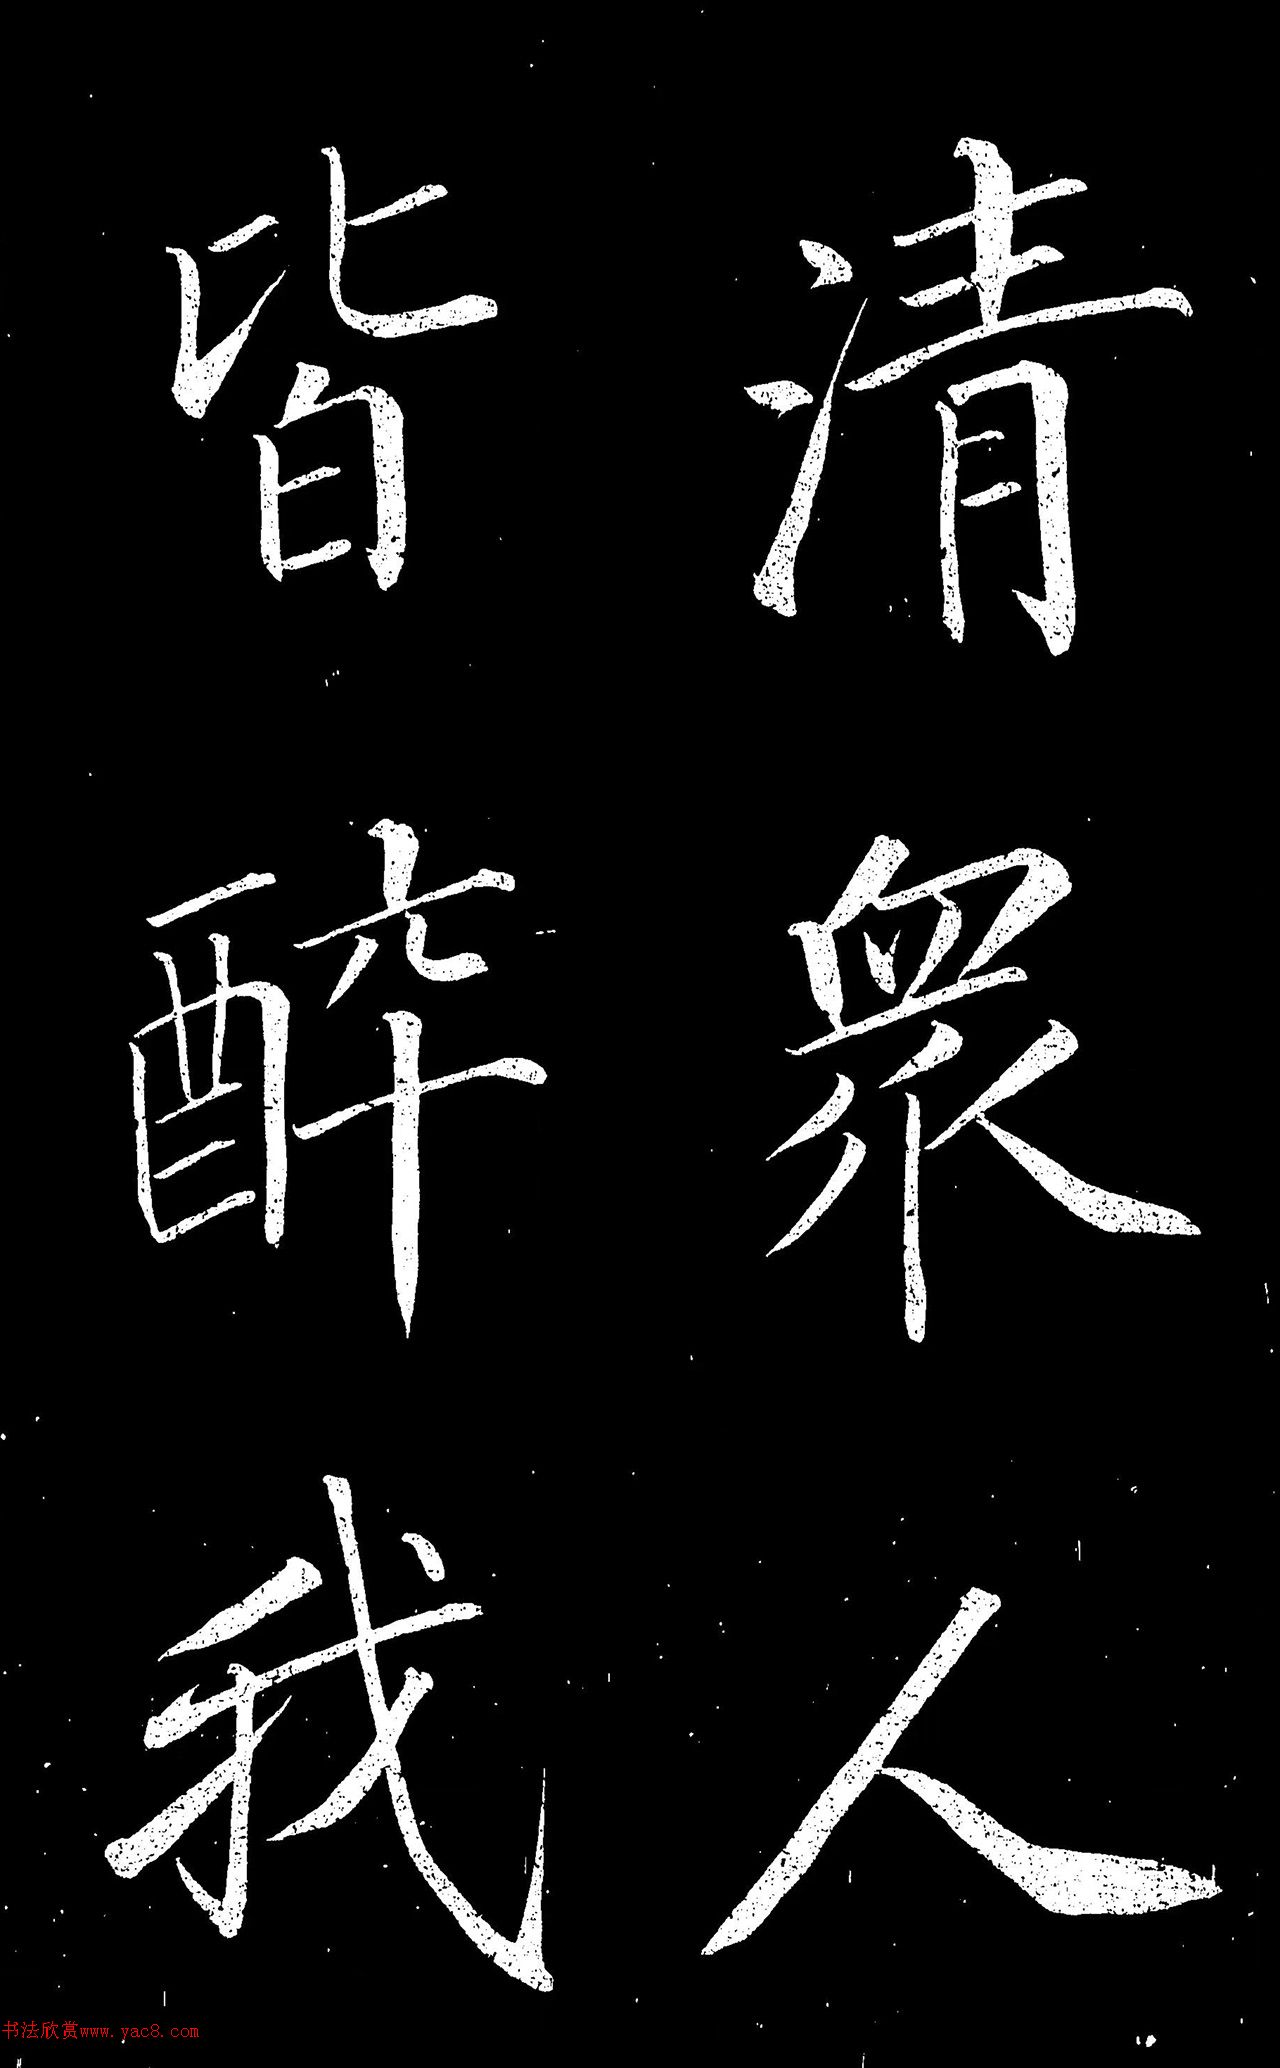 清眾人
皆醉我
书法欣赏www.yac8.com